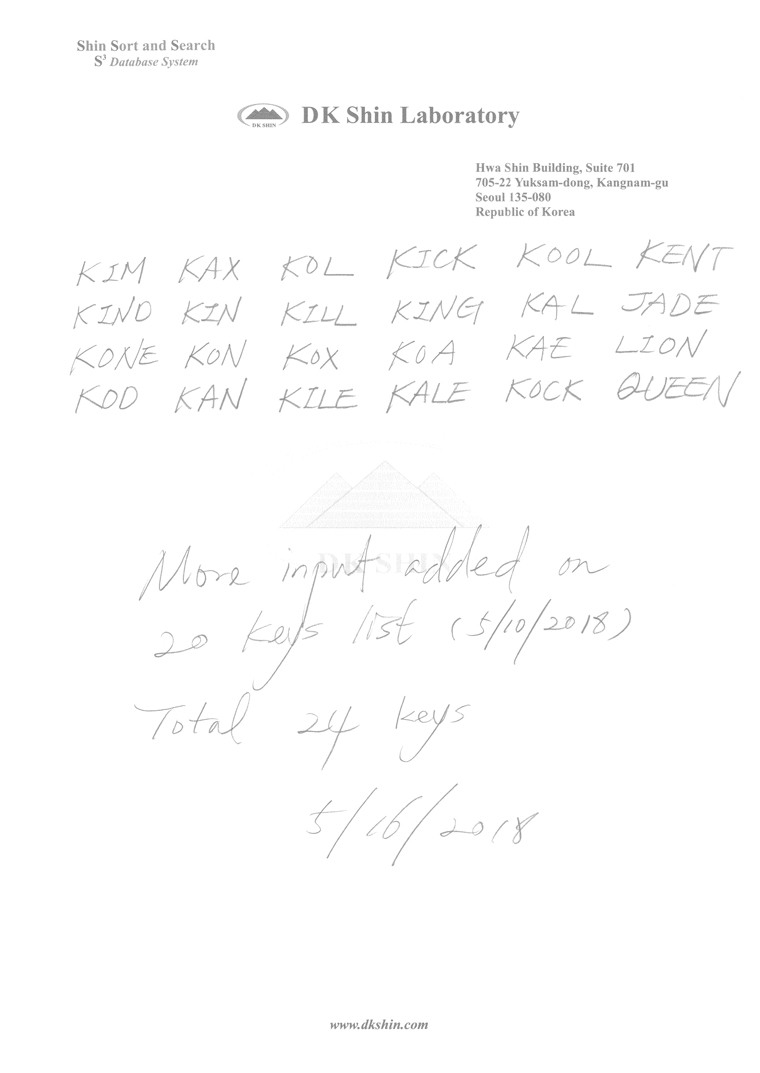 Shin Sort and Search
S³ Database System
DK SHIN
DK Shin Laboratory
Hwa Shin Building, Suite 701
705-22 Yuksam-dong, Kangnam-gu
Seoul 135-080
Republic of Korea
KIM KAX KOL KICK KOOL KENT
KIND KIN KILL KING KAL JADE
KONE KON KOX KOA KAE LION
KOD KAN KILE KALE KOCK QUEEN
DK SHIN
More input added on
20 keys list (5/10/2018)
Total 24 keys
5/16/2018
www.dkshin.com